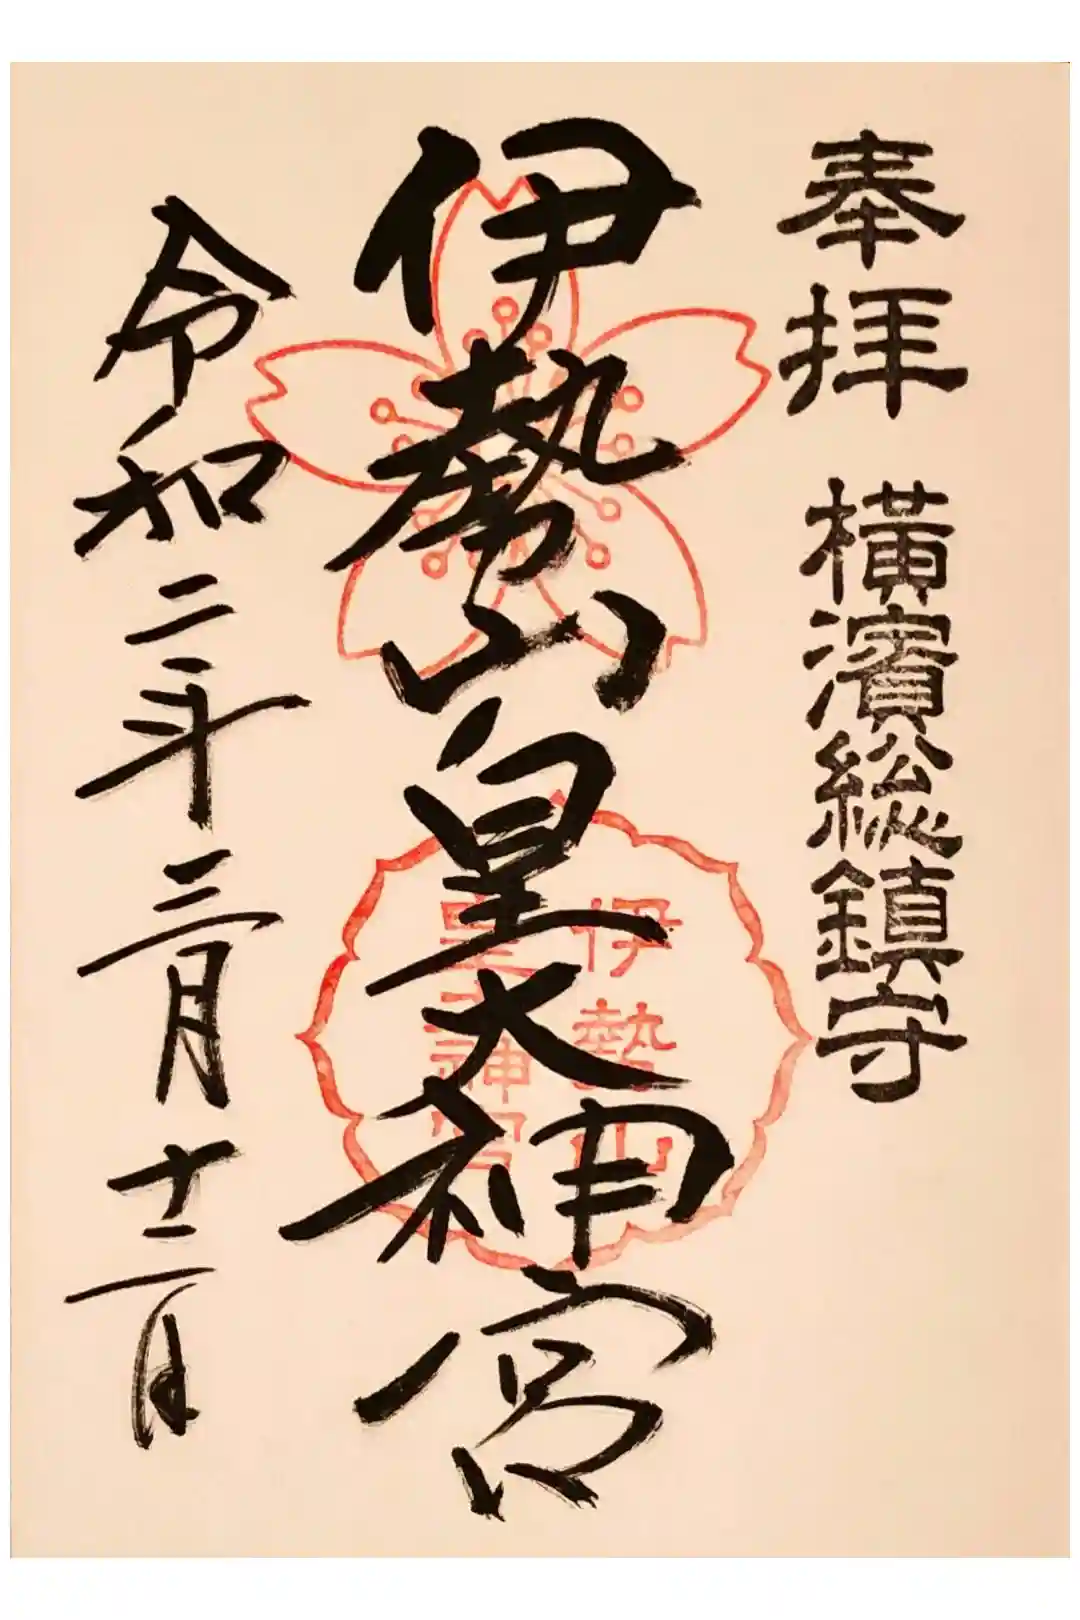 奉拝 横濱総鎮守
伊勢山皇大神宮
伊勢山
皇大神宮
令和二年三月十二日